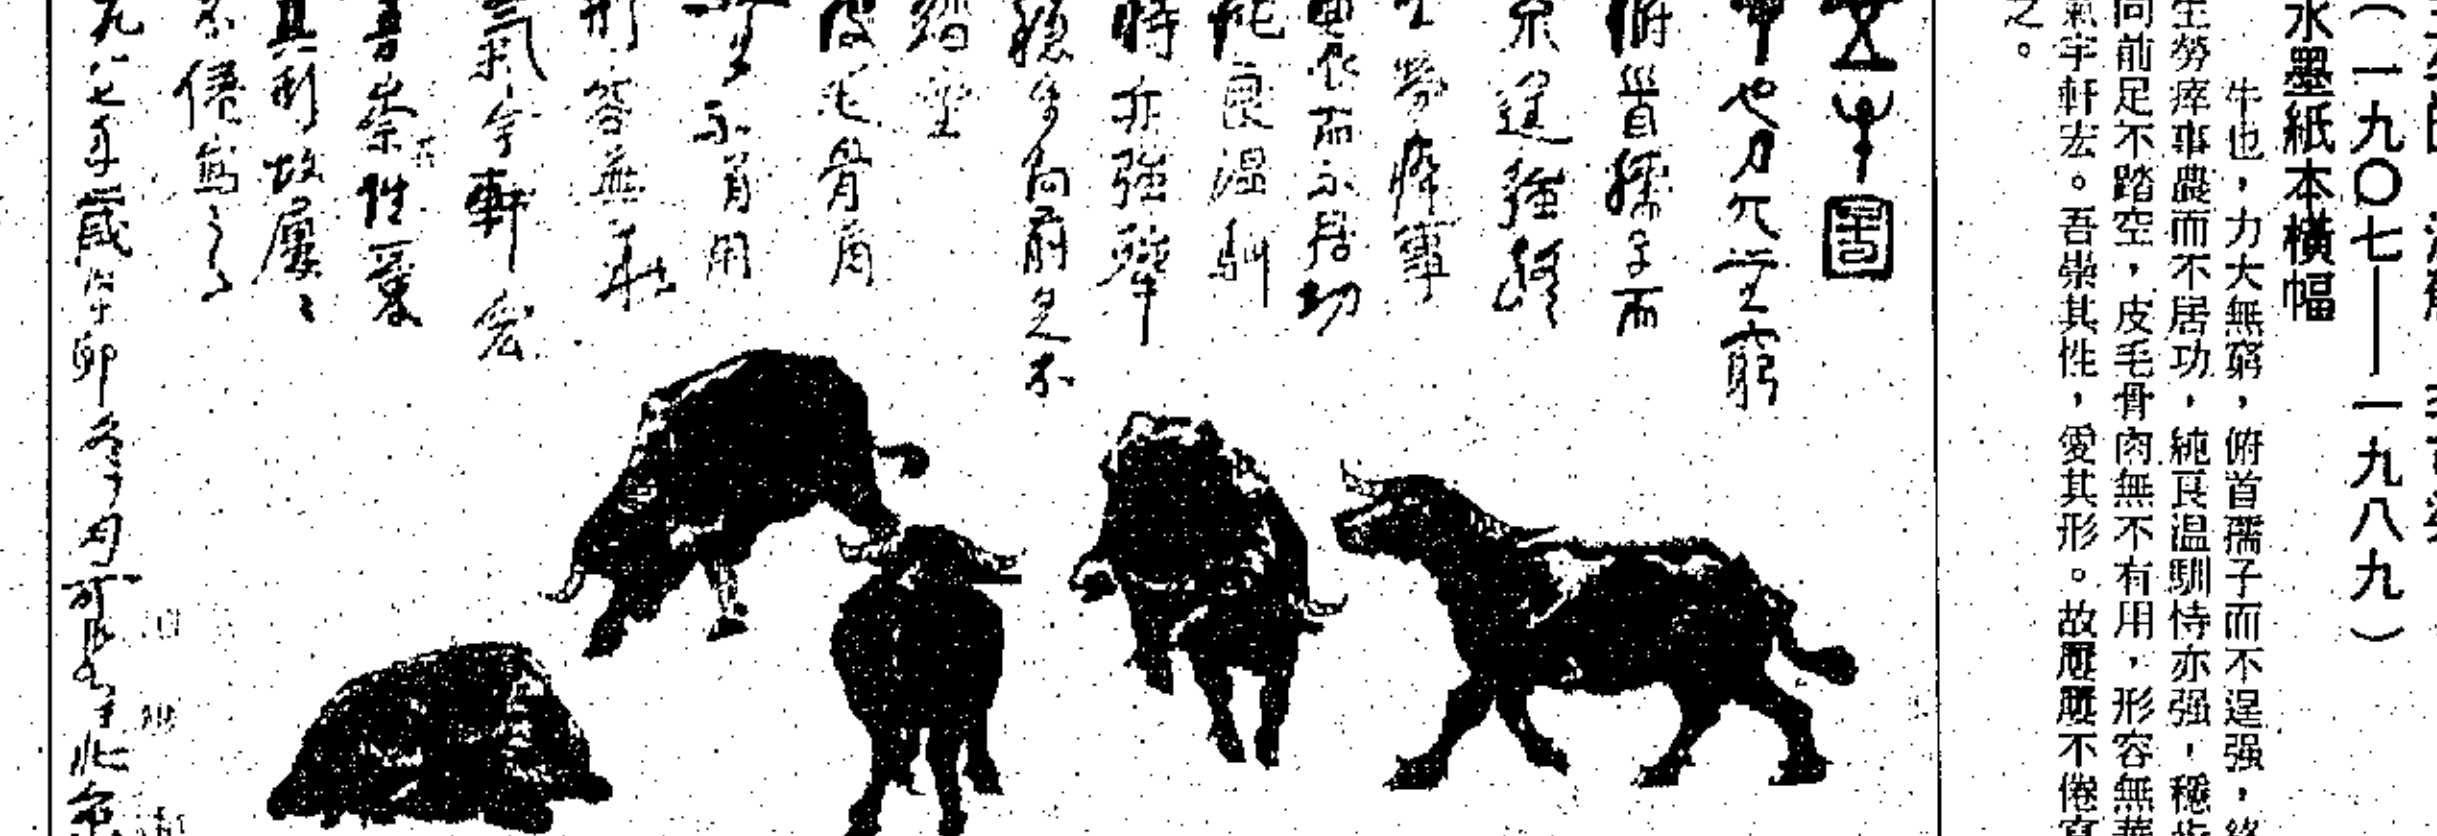 （一九〇七——一九八九）
水墨紙本橫幅
牛也，力大無窮，俯首孺子而不逞强，終
生勞瘁事農而不居功，純良温馴恃亦强，穩步
向前足不踏空，皮毛骨肉無不有用，形容無華
氣宇軒宏。吾崇其性，愛其形。故屢屢不倦寫
之。
五牛圖
牛也力大無窮
俯首孺子而
不逞強終
生勞瘁事
農而不居功
純良溫馴
時亦強犟
穩步向前足不
踏空
皮毛骨角
無不有用
形容無華
氣宇軒宏
吾崇其性愛
其形故屢〻
不倦寫之
九八七年歲次丁卯冬十月可染于北京